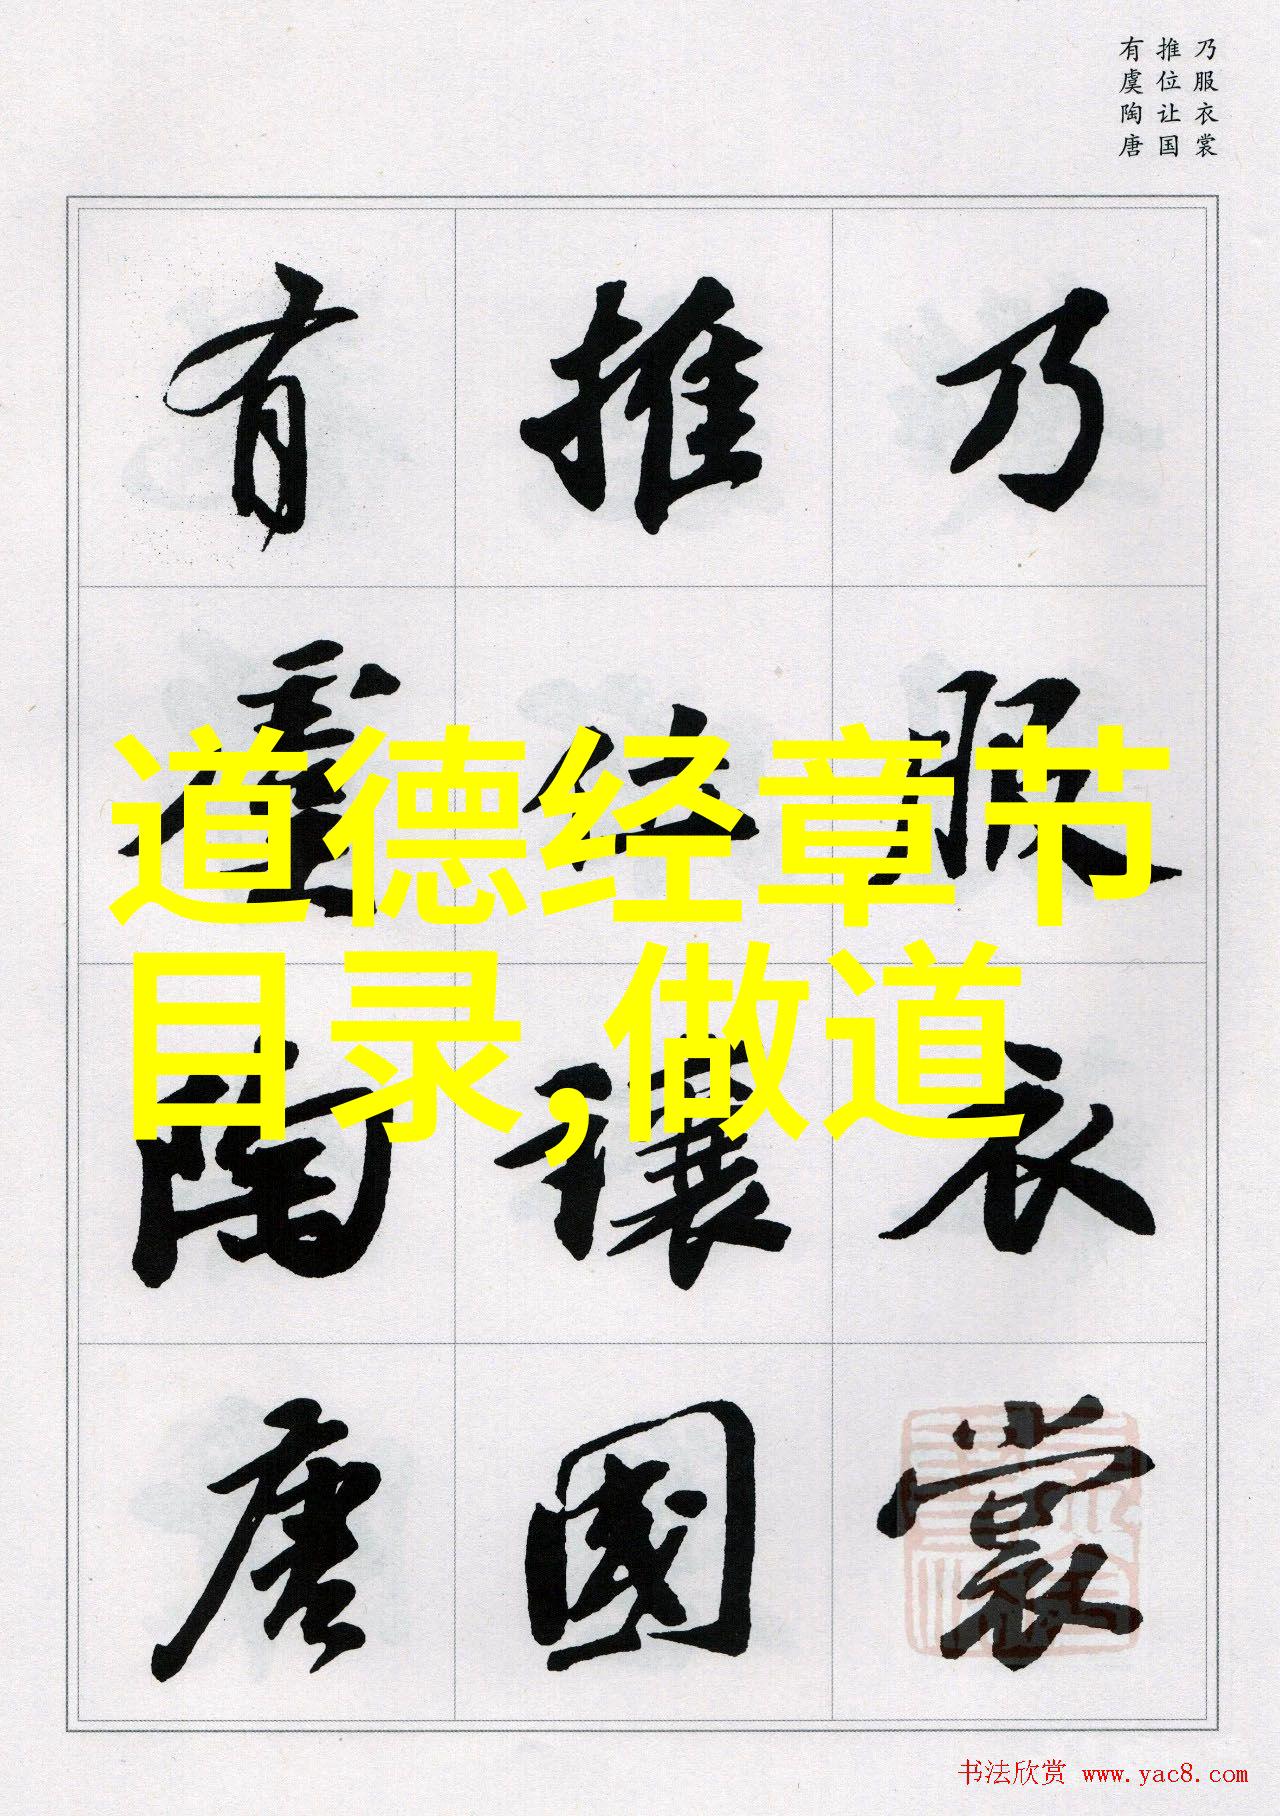 乃服衣裳
推位让国
有虞陶唐
乃服衣裳
推位讓國
有虞陶唐
道德经章节
目录,做道
书法欣赏 www.yac8.com